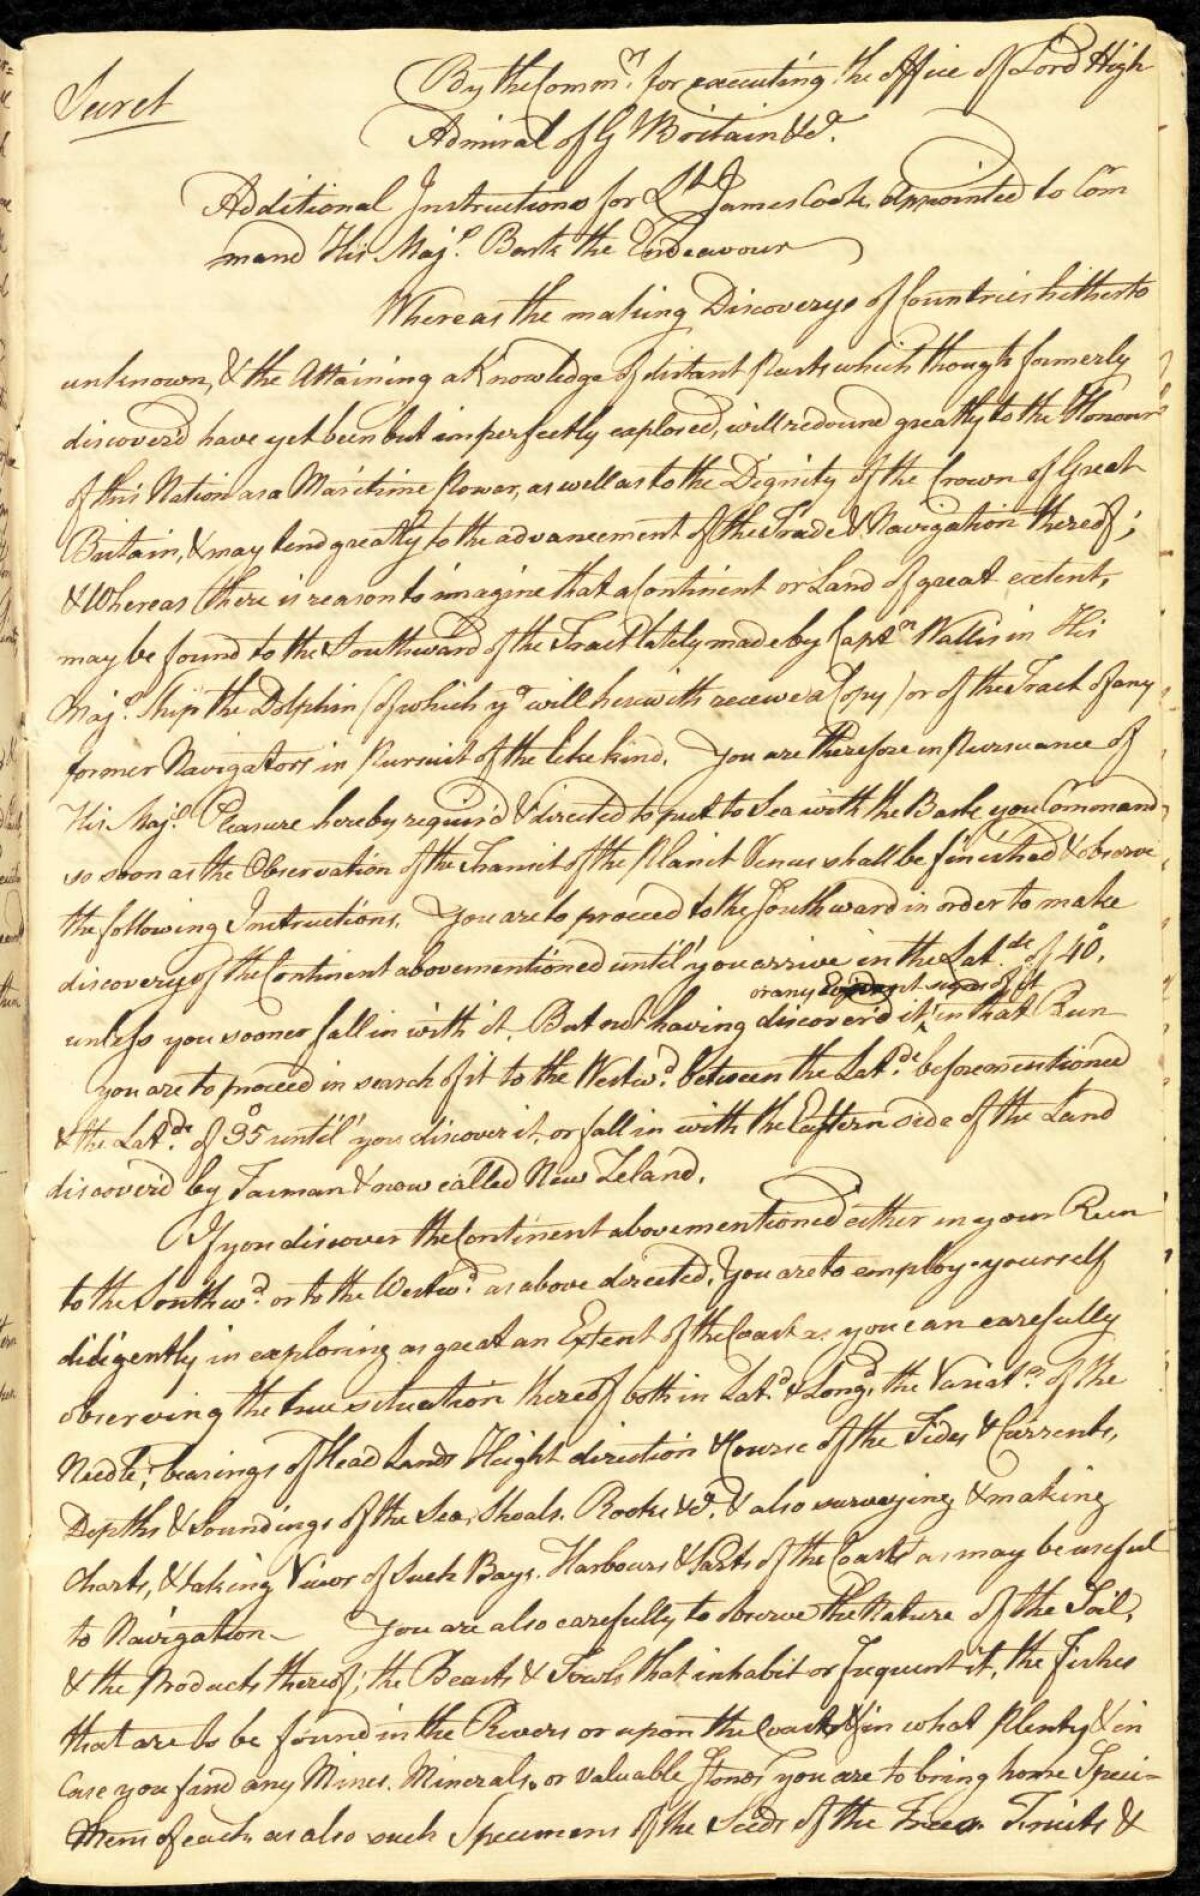 Secret
By the Commrs. for executing the Office of Lord High
Admiral of Gt Britain &ca.
Additional Instructions for Lt. James Cook, Appointed to Com
mand His Maj.s Bark the Endeavour
Whereas the making Discoverys of Countries hitherto
unknown, & the Attaining a Knowledge of distant Parts which though formerly
discover'd have yet been but imperfectly explored, will redound greatly to the Honour
of this Nation as a Maritime Power, as well as to the Dignity of the Crown of Great
Britain, & may tend greatly to the advancement of the Trade & Navigation thereof;
& Whereas there is reason to imagine that a Continent or Land of great extent,
may be found to the Southward of the Tract lately made by Captn. Wallis in His
Maj.s Ship the Dolphin (of which yo will herewith receive a Copy) or of the Tract of any
former Navigators in Pursuit of the like kind. You are Therefore in Pursuance of
His Maj.s Pleasure hereby requir'd & directed to put to Sea with the Bark you Command
so soon as the Observation of the Transit of the Planet Venus shall be finished & observe
the following Instructions. You are to proceed to the Southward in order to make
discovery of the Continent abovementioned until you arrive in the Latde. of 40°.
unless you sooner fall in with it. But not having discover'd it, or any Evident signs of it in that Run
you are to proceed in search of it to the Westwd. between the Latde. beforementioned
& the Latde. of 35° until you discover it, or fall in with the Eastern side of the Land
discover'd by Tasman & now called New Zeland.
If you discover the Continent abovementioned either in your Run
to the Southwd. or to the Westwd. as above directed, You are to employ yourself
diligently in exploring as great an Extent of the Coast as you can carefully
observing the true situation thereof both in Latd. & Longd. the Variatn. of the
Needle; bearings of Head Lands Height direction & Course of the Tides & Currents,
Depths & Soundings of the Sea, Shoals, Rocks &ca. & also surveying & making
Charts, & taking Views of Such Bays, Harbours & Parts of the Coasts as may be useful
to Navigation. You are also carefully to observe the Nature of the Soil,
& the Products thereof; the Beasts & Fowls that inhabit or frequent it, the Fishes
that are to be found in the Rivers or upon the Coast & in what Plenty & in
Case you find any Mines, Minerals, or valuable Stones you are to bring home Speci-
mens of each, as also such Specimens of the Seeds of the Trees Fruits &